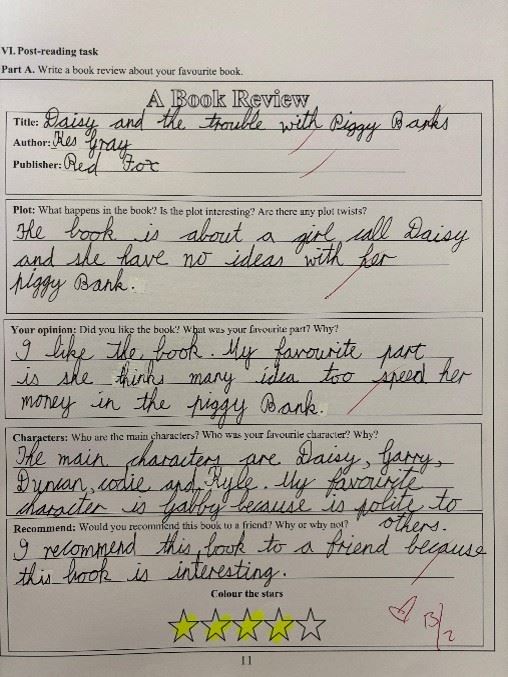 VI. Post-reading task
Part A. Write a book review about your favourite book.
A Book Review
Title: Daisy and the trouble with Piggy Banks
Author: Kes Gray
Publisher: Red Fox
Plot: What happens in the book? Is the plot interesting? Are there any plot twists?
The book is about a girl call Daisy
and she have no ideas with her
piggy Bank.
Your opinion: Did you like the book? What was your favourite part? Why?
I like the book. My favourite part
is she thinks many idea too speed her
money in the piggy Bank.
Characters: Who are the main characters? Who was your favourite character? Why?
The main characters are Daisy, Garry,
Dyncan, codie and Kyle. My favourite
character is Gabby because is polite to
others.
Recommend: Would you recommend this book to a friend? Why or why not?
I recommend this book to a friend because
this book is interesting.
Colour the stars
11